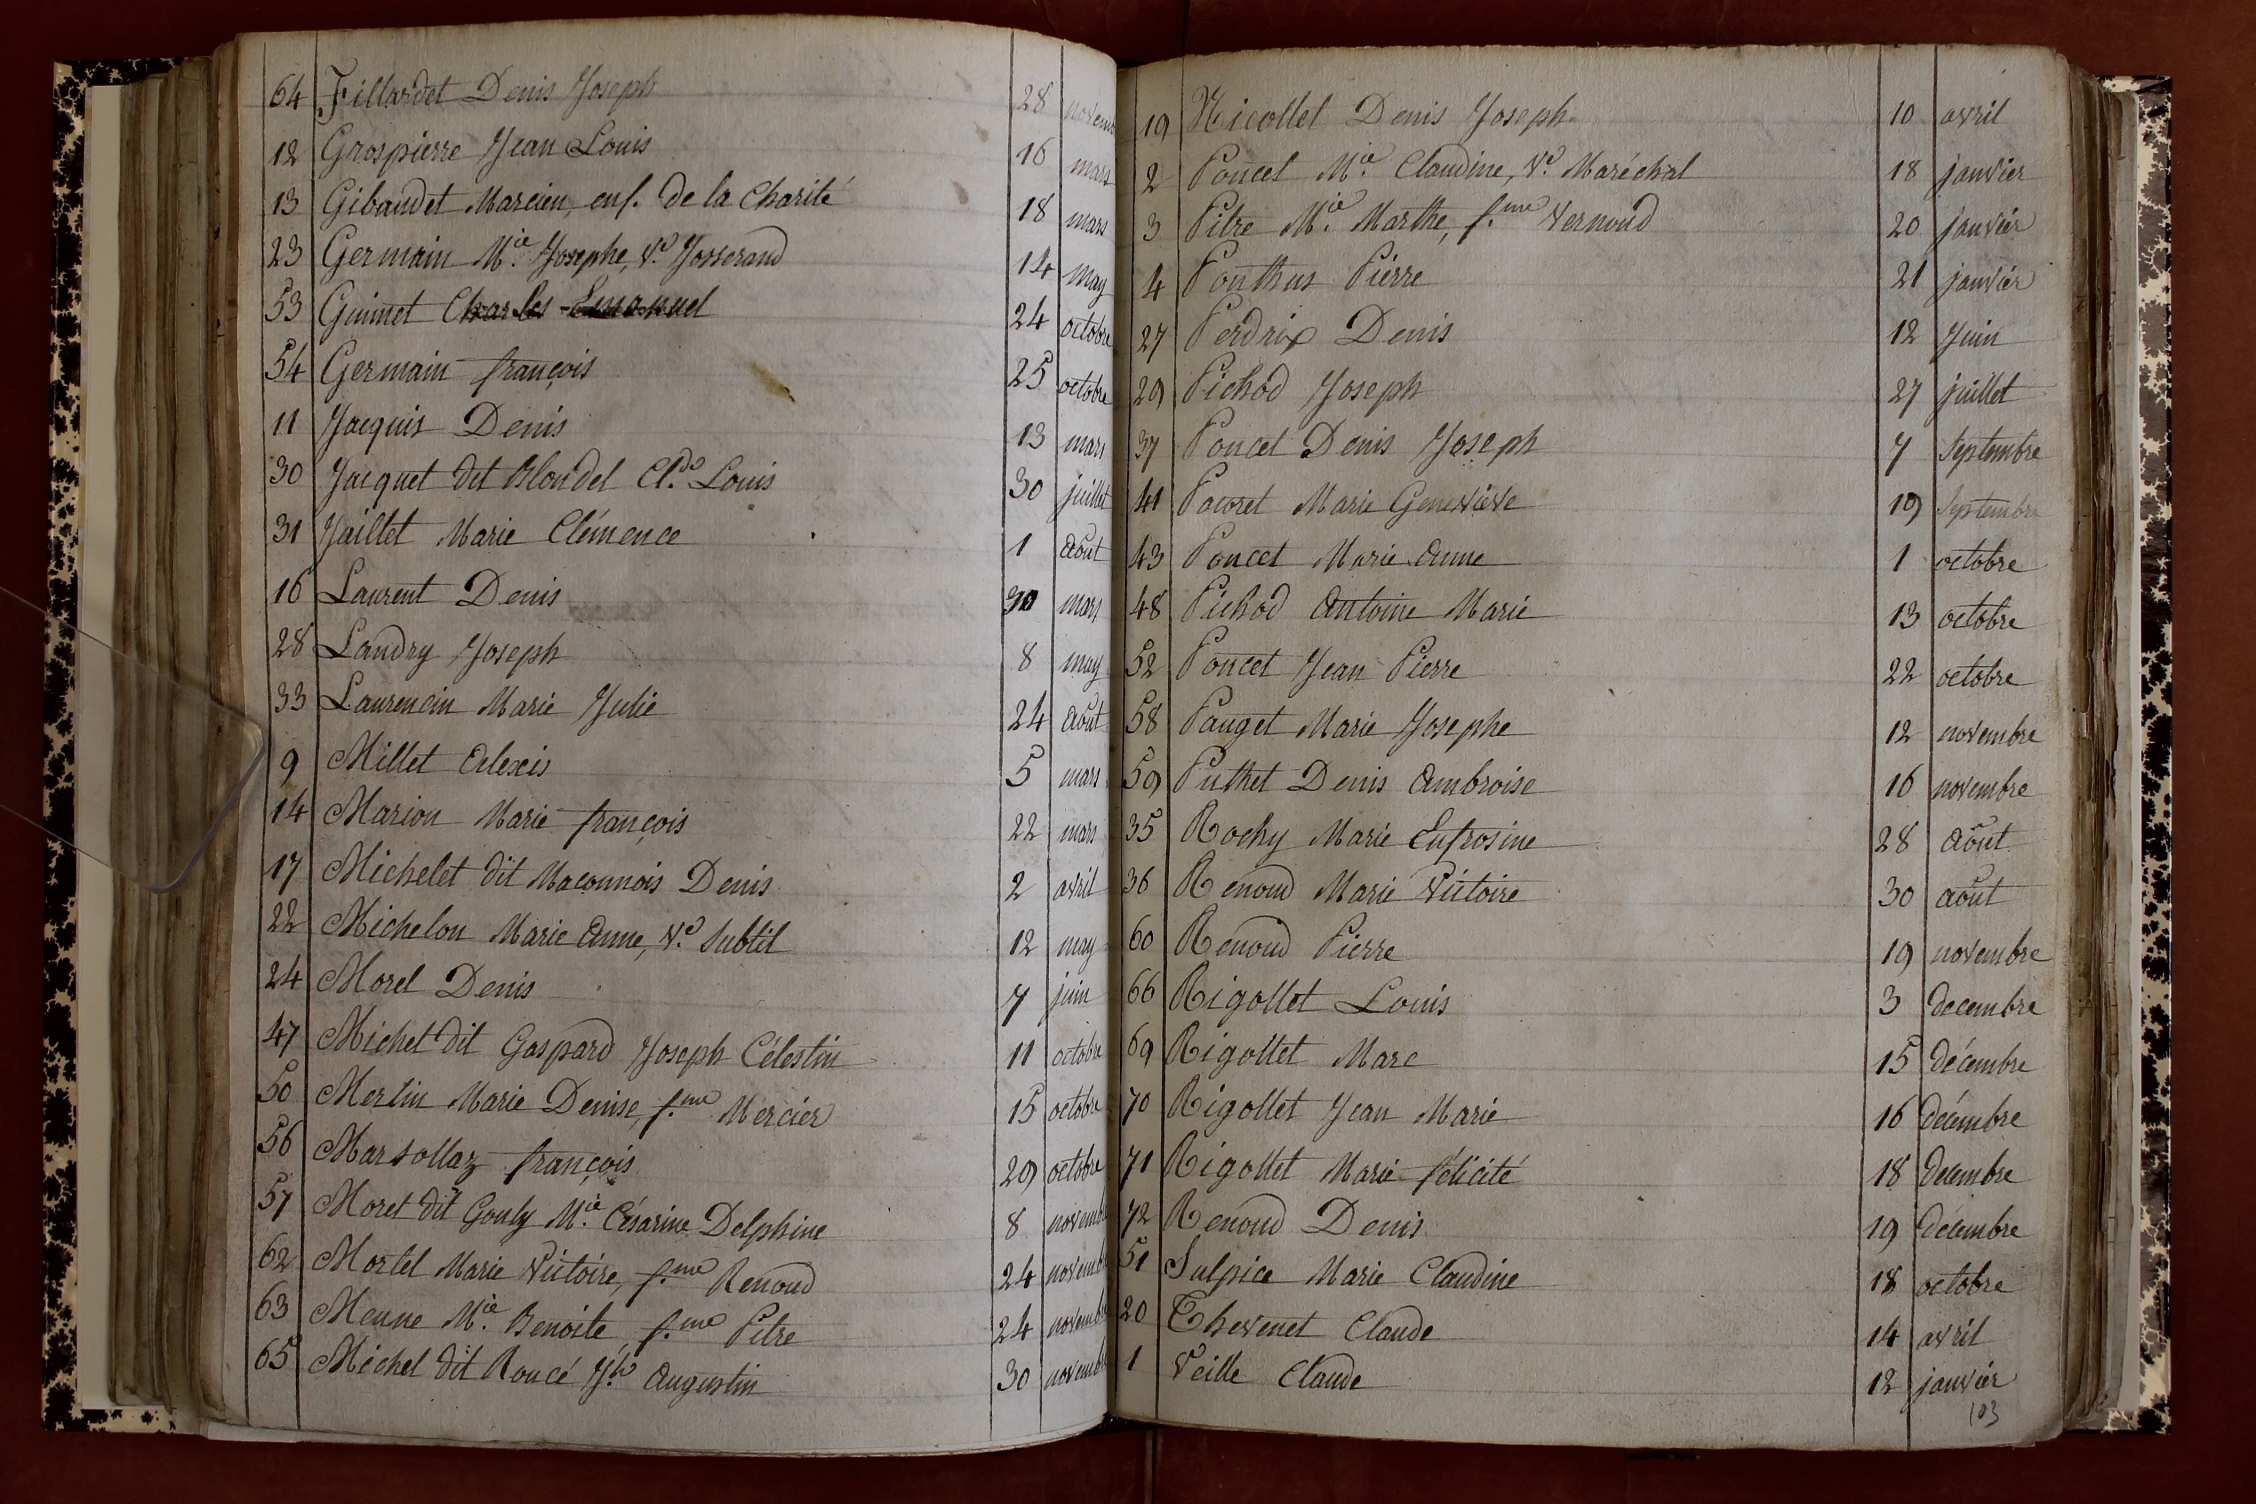 64 Fillardet Denis Joseph 28 novem
12 Grospierre Jean Louis 16 mars
13 Gibaudet Marcien, enf. de la Charité 18 mars
23 Germain M.ie Josephe, V.e Josserand 14 may
53 Guimet Charles Emanuel 24 octobre
54 Germain françois 25 octobre
11 Jacquis Denis 13 mars
30 Jacquet dit Blondel Cl.de Louis 30 juillet
31 Jaillet Marie Clémence 1 août
16 Laurent Denis 30 mars
28 Landry Joseph 8 may
33 Laurencin Marie Julie 24 août
9 Millet Alexis 5 mars
14 Marion Marie françois 22 mars
17 Michelet dit Maconnois Denis 2 avril
22 Michelon Marie Anne, V.e Subtil 12 may
24 Morel Denis 7 juin
47 Michel dit Gaspard Joseph Célestin 11 octobre
50 Merlin Marie Denise, f.me Mercier 15 octobre
56 Marsollaz françois 29 octobre
57 Moret dit Gouly M.ie Césarine Delphine 8 novemb
62 Mortel Marie Victoire, f.me Renoud 24 novemb
63 Menne M.ie Benoite, f.me Pitre 24 novemb
65 Michel dit Roncé J.h Augustin 30 novemb
19 Nicollet Denis Joseph 10 avril
2 Poncet M.ie Claudine, V.e Maréchal 18 janvier
3 Pitre M.ie Marthe, f.me Vernoud 20 janvier
4 Ponthus Pierre 21 janvier
27 Perdrix Denis 12 Juin
29 Pichod Joseph 27 juillet
37 Poncet Denis Joseph 7 Septembre
41 Marie Geneviève 19 Septembre
43 Poncet Marie Anne 1 octobre
48 Pichod Antoine Marie 13 octobre
52 Poncet Jean Pierre 22 octobre
58 Pauget Marie Josephe 12 novembre
59 Puthet Denis Ambroise 16 novembre
35 Rochy Marie Eufrosine 28 août
36 Renoud Marie Victoire 30 août
60 Renoud Pierre 19 novembre
66 Rigollet Louis 3 decembre
69 Rigollet Marc 15 décembre
70 Rigollet Jean Marie 16 décembre
71 Rigollet Marie félicité 18 decembre
72 Renoud Denis 19 décembre
51 Sulpice Marie Claudine 18 octobre
20 Thevenet Claude 14 avril
1 Veille Claude 12 janvier
103